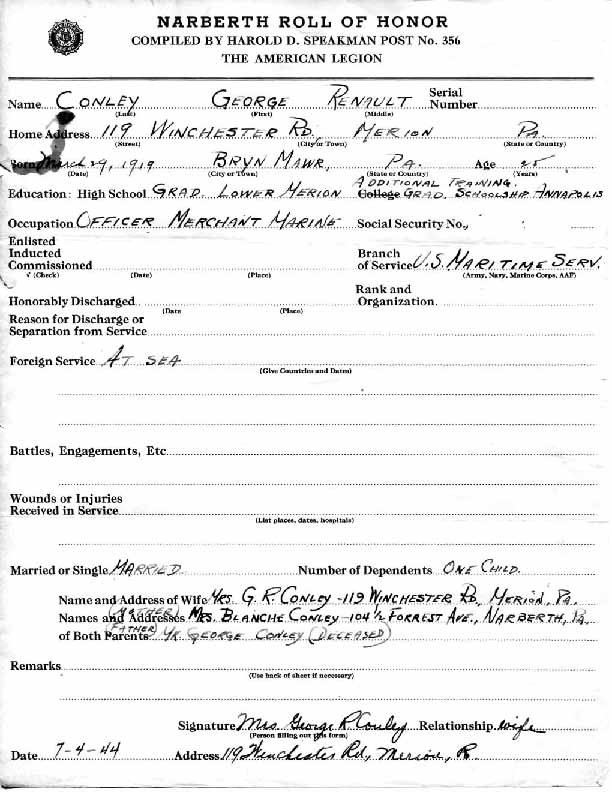 NARBERTH ROLL OF HONOR
COMPILED BY HAROLD D. SPEAKMAN POST No. 356
THE AMERICAN LEGION
Name CONLEY GEORGE RENAULT Serial Number
(Last) (First) (Middle)
Home Address 119 WINCHESTER RD. MERION PA.
(Street) (City or Town) (State or Country)
Born March 29, 1919 BRYN MAWR, PA. Age 25
(Date) (City or Town) (State or Country) (Years)
ADDITIONAL TRAINING.
Education: High School GRAD. LOWER MERION College GRAD. SCHOOLSHIP ANNAPOLIS
Occupation OFFICER MERCHANT MARINE Social Security No.
Enlisted
Inducted Branch
Commissioned of Service U.S. MARITIME SERV.
√ (Check) (Date) (Place) (Army, Navy, Marine Corps, AAF)
Rank and
Honorably Discharged Organization
(Date (Place)
Reason for Discharge or
Separation from Service
Foreign Service AT SEA
(Give Countries and Dates)
Battles, Engagements, Etc
Wounds or Injuries
Received in Service
(List places, dates, hospitals)
Married or Single MARRIED Number of Dependents ONE CHILD.
Name and Address of Wife MRS. G. R. CONLEY - 119 WINCHESTER RD, MERION, PA.
(MOTHER)
Names and Addresses MRS. BLANCHE CONLEY - 104 1/2 FORREST AVE., NARBERTH, PA
(FATHER)
of Both Parents MR. GEORGE CONLEY (DECEASED)
Remarks
(Use back of sheet if necessary)
Signature Mrs. George R. Conley Relationship wife
(Person filling out this form)
Date 7-4-44 Address 119 Winchester Rd, Merion, Pa.